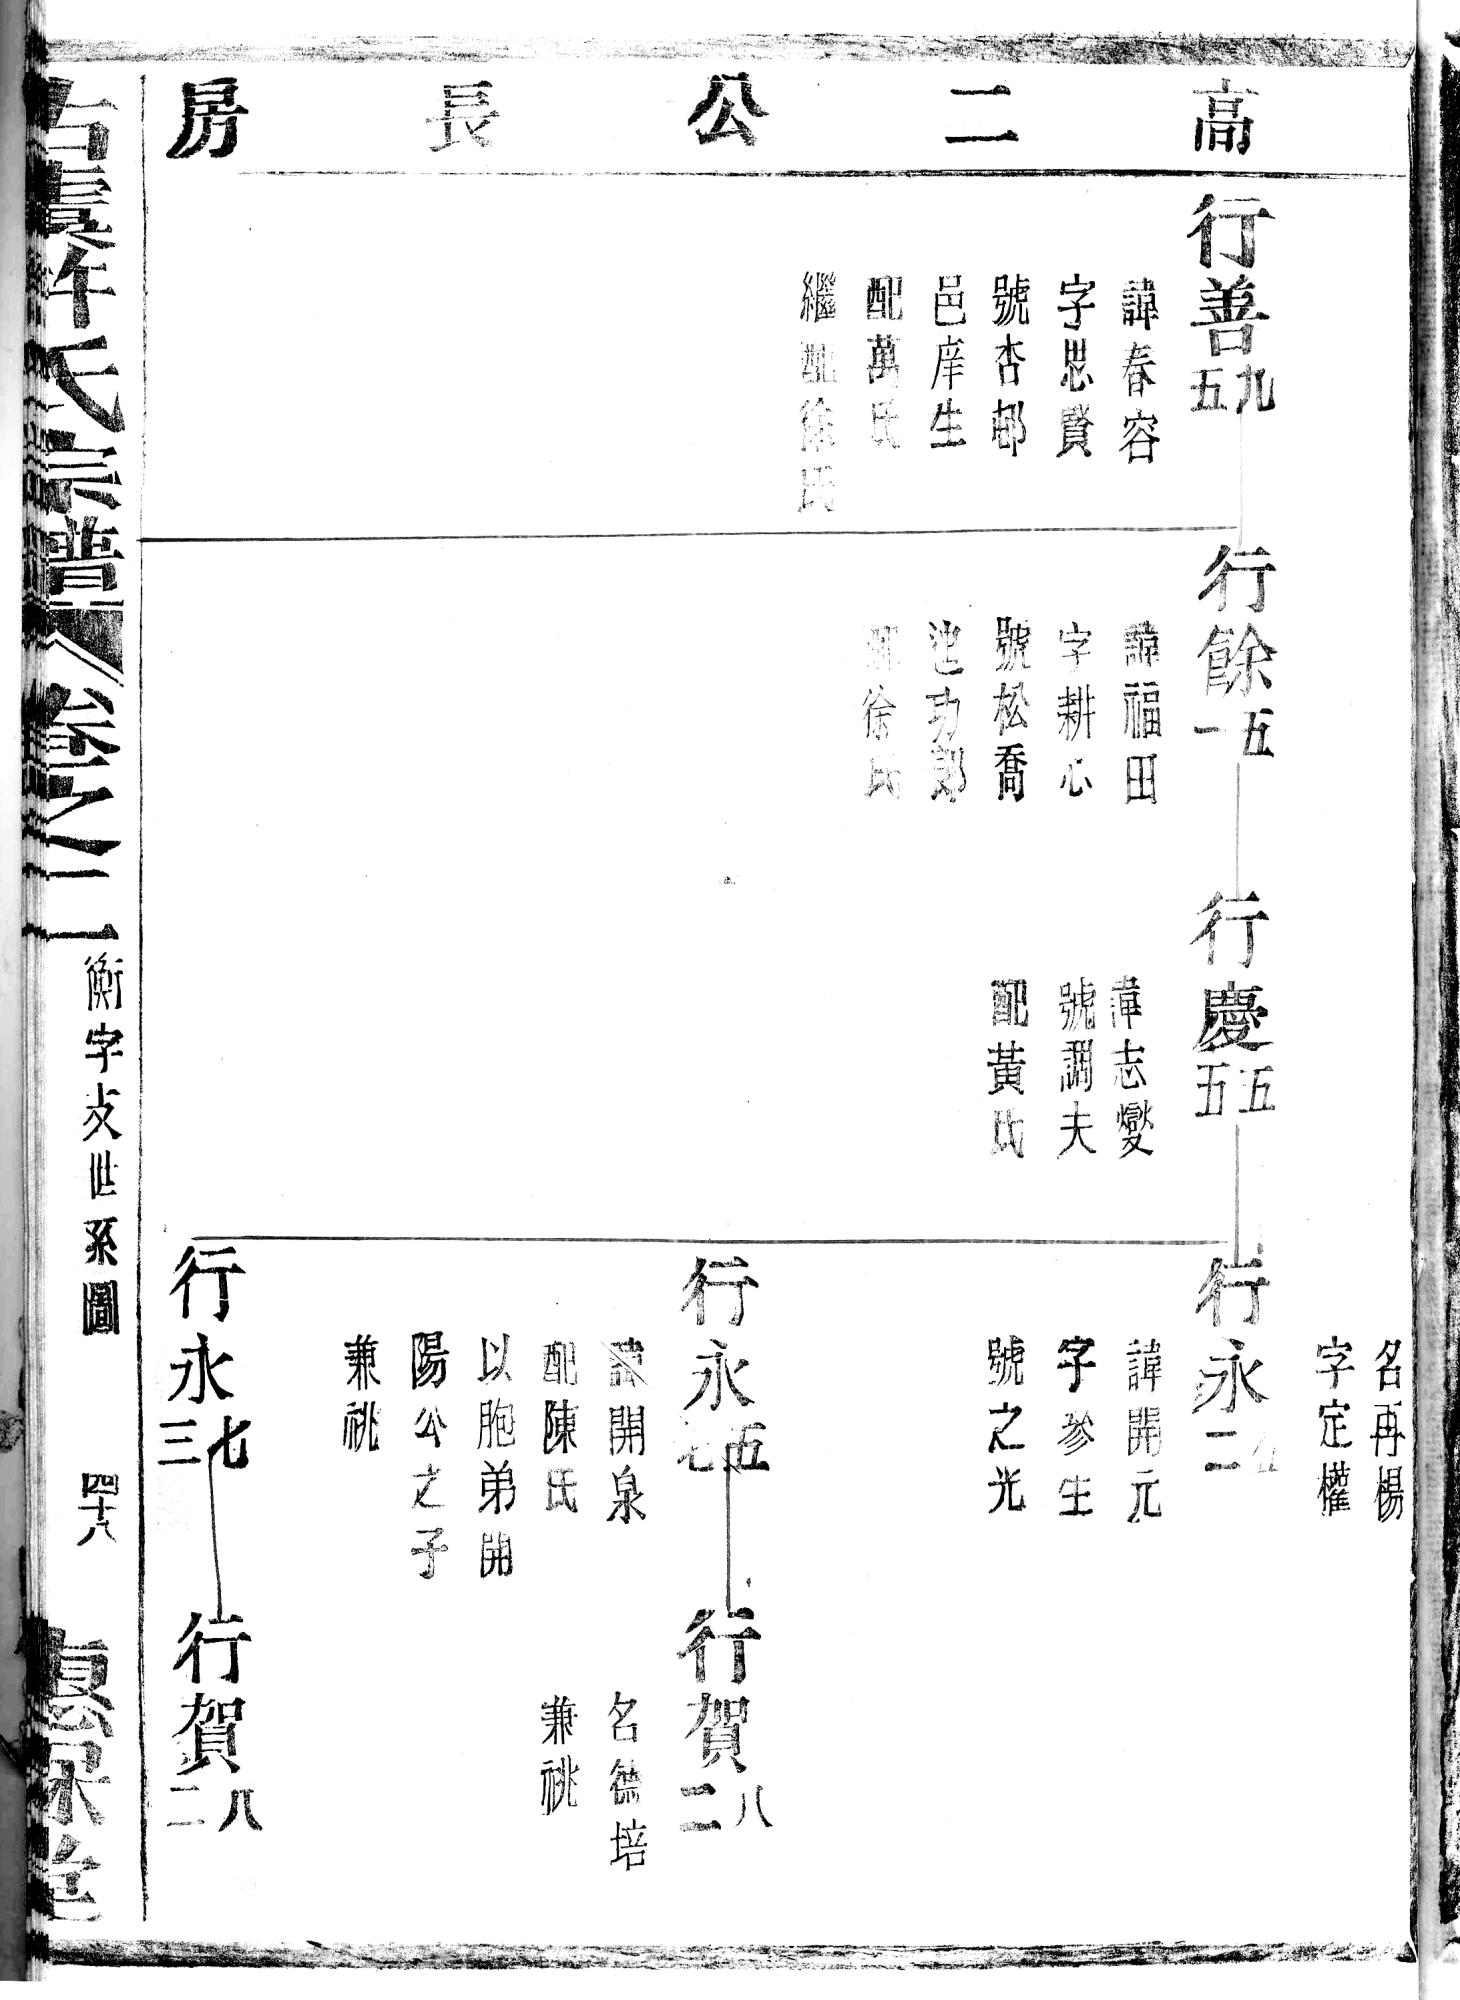 高二公長房
名再楊
字定權
行善九五
諱春容
字思賢
號杏邨
邑庠生
配萬氏
繼配徐氏
行餘五一
諱福田
字耕心
號松喬
迪功郎
配徐氏
行慶五五
諱志燮
號調夫
配黃氏
行永五二
諱開元
字參生
號之光
行永五七
諱開泉
配陳氏
以胞弟開
陽公之子
兼祧
行賀八二
名德培
兼祧
行永七三
行賀八二
古虞許氏宗譜 卷之二
衡字支世系圖
四十八
惠保堂